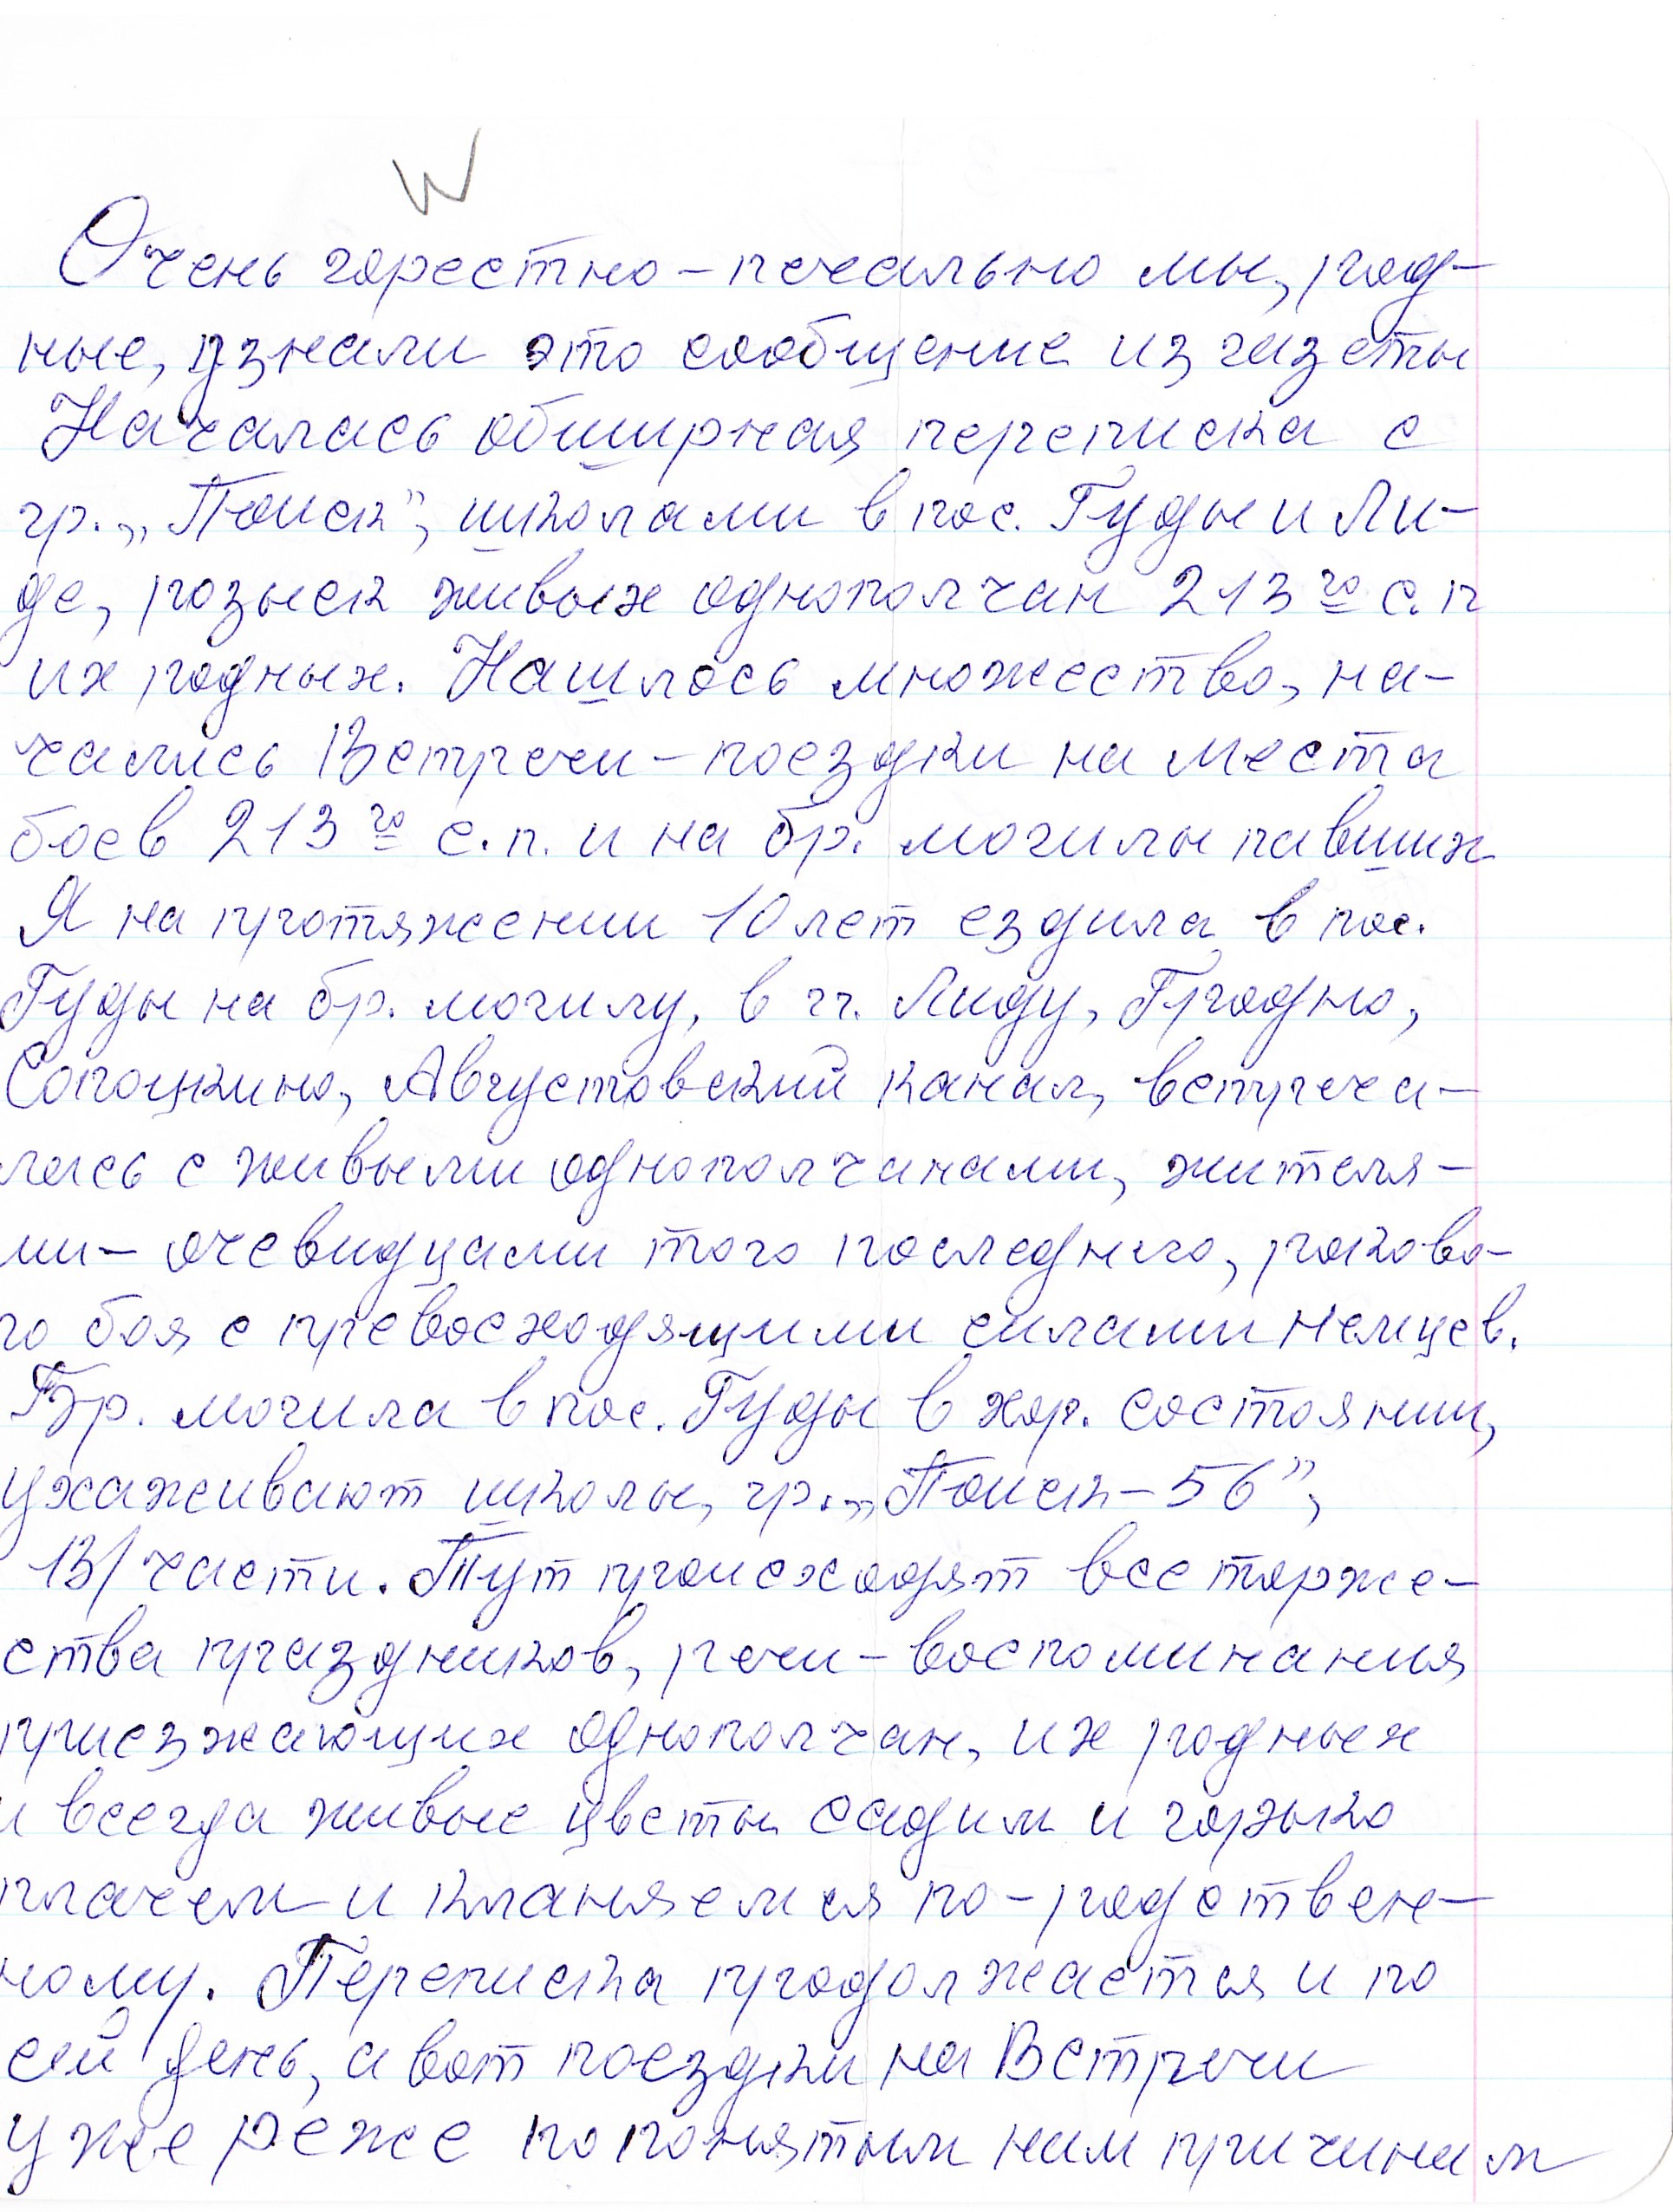 Очень горестно-печально мы, род-
ные, узнали это сообщение из газеты
Началась обширная переписка с
гр. „Поиск", школами в пос. Гуды и Ли-
де, розыск живых однополчан 213го с.п
их родных. Нашлось множество, на-
чались Встречи-поездки на места
боев 213го с.п. и на бр. могилы павших
Я на протяжении 10 лет ездила в пос.
Гуды на бр. могилу, в гг. Лиду, Гродно,
Сопоцкино, Августовский канал, встреча-
лась с живыми однополчанами, жителя-
ми- очевидцами того последнего, роково-
го боя с превосходящими силами немцев.
Бр. могила в пос. Гуды в хор. состоянии,
ухаживают школы, гр. „Поиск-56",
В/части. Тут происходят все торже-
ства праздников, речи-воспоминания
приезжающих однополчан, их родных
и всегда живые цветы садим и горько
плачем и кланяемся по-родствен-
ному. Переписка продолжается и по
сей день, а вот поездки на Встречи
уже реже по понятным ним причинам